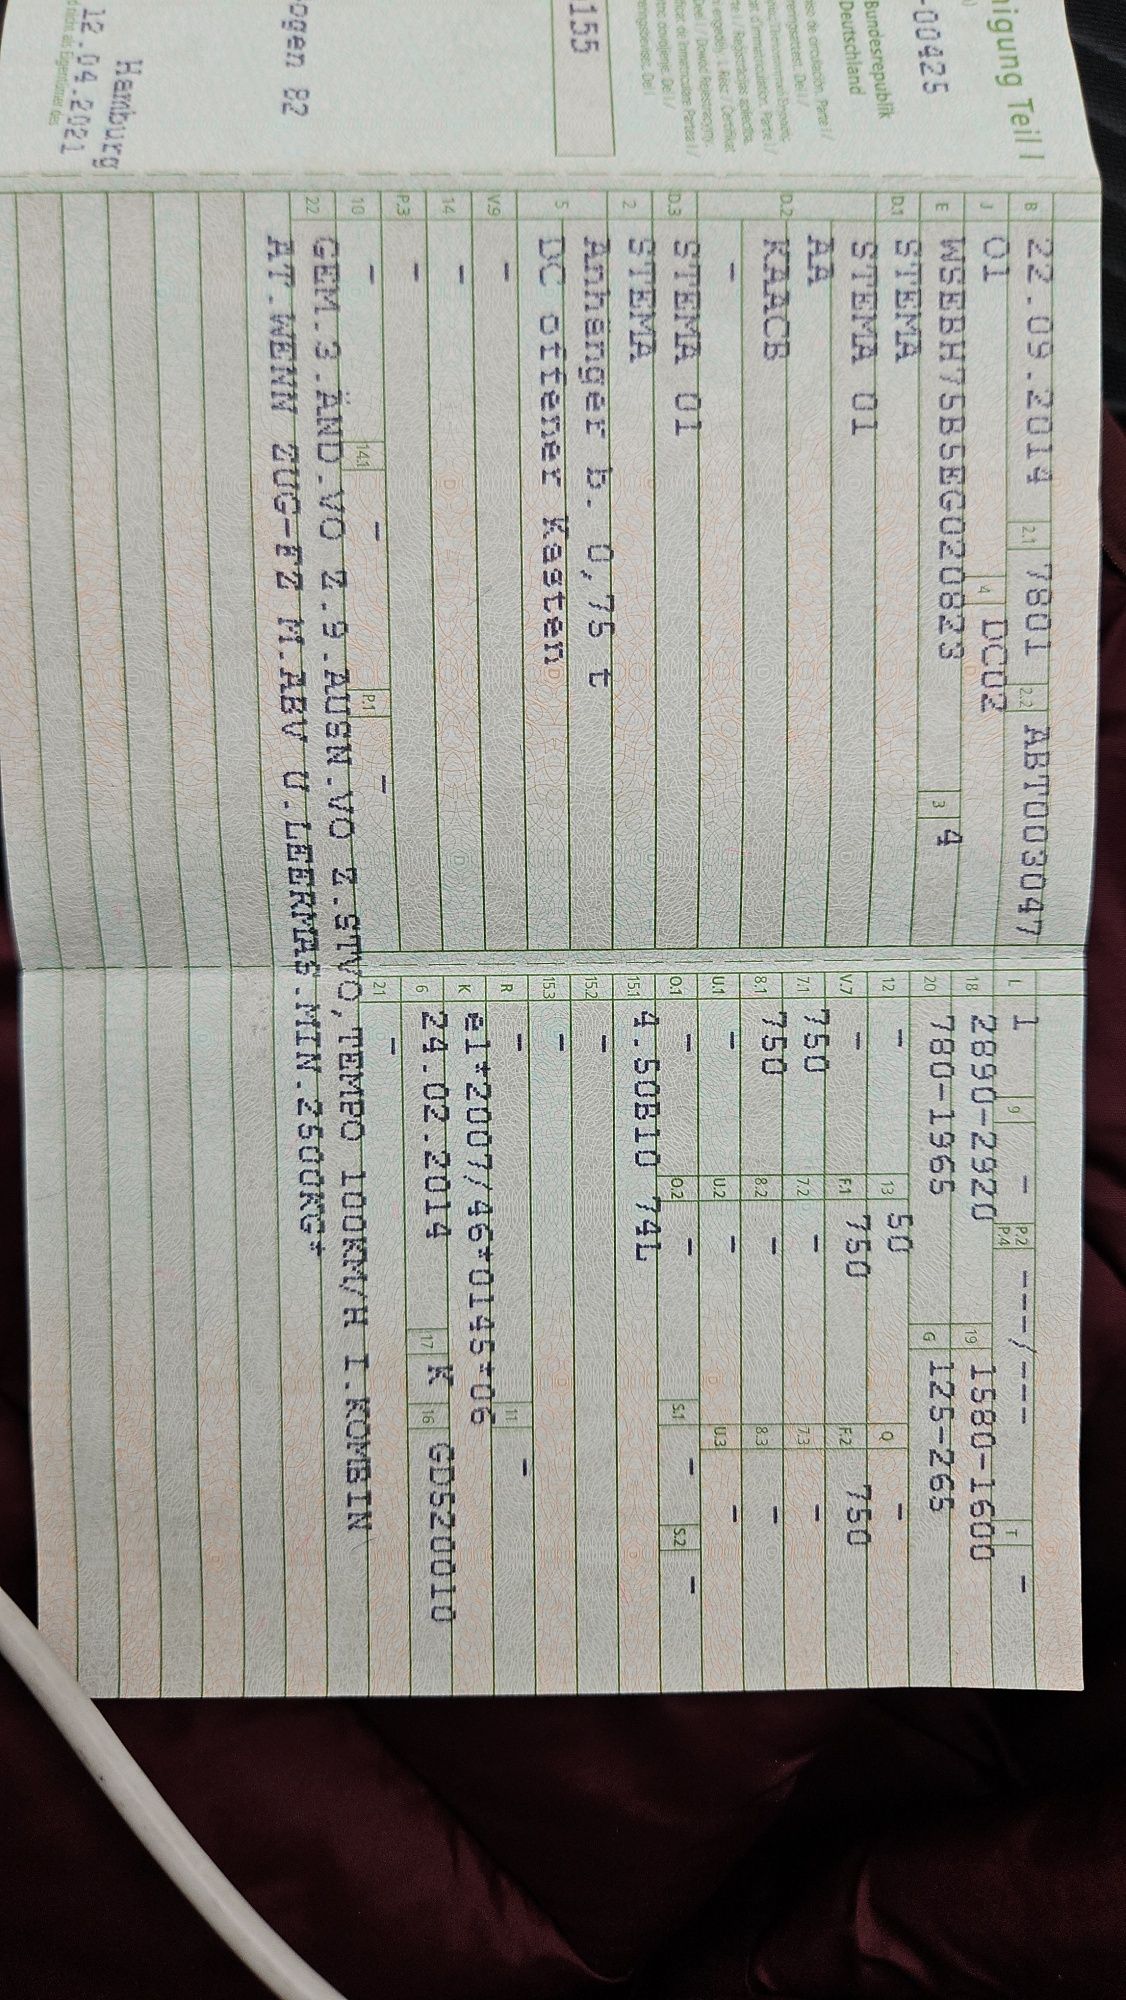 igung Teil I
-00425
Bundesrepublik
Deutschland
155
ogen 82
Hamburg
12.04.2021
B 22.09.2014 2.1 7801 2.2 ABT003047
J 01 4 DC02
E WSEBH75B5EG020823 3 4
D.1 STEMA
STEMA 01
AA
D.2 KAACB
-
D.3 STEMA 01
2 STEMA
Anhänger b. 0,75 t
5 DC offener Kasten
V.9 -
14 -
P.3 -
10 - 14.1 - P.1 -
L 1 9 - P.2 P.4 ---/--- T -
18 2890-2920 19 1580-1600
20 780-1965 G 125-265
12 - 13 50 Q -
V.7 - F.1 750 F.2 750
7.1 750 7.2 - 7.3 -
8.1 750 8.2 - 8.3 -
U.1 - U.2 - U.3 -
O.1 - O.2 - S.1 - S.2 -
15.1 4.50B10 74L
15.2 -
15.3 -
R - 11 -
K e1*2007/46*0145*06
6 24.02.2014 17 K 16 GD520010
21 -
22 GEM.3.ÄND.VO Z.9.AUSN.VO Z.STVO,TEMPO 100KM/H I.KOMBIN
AT.WENN ZUG-FZ M.ABV U.LEERMAS.MIN.2500KG*